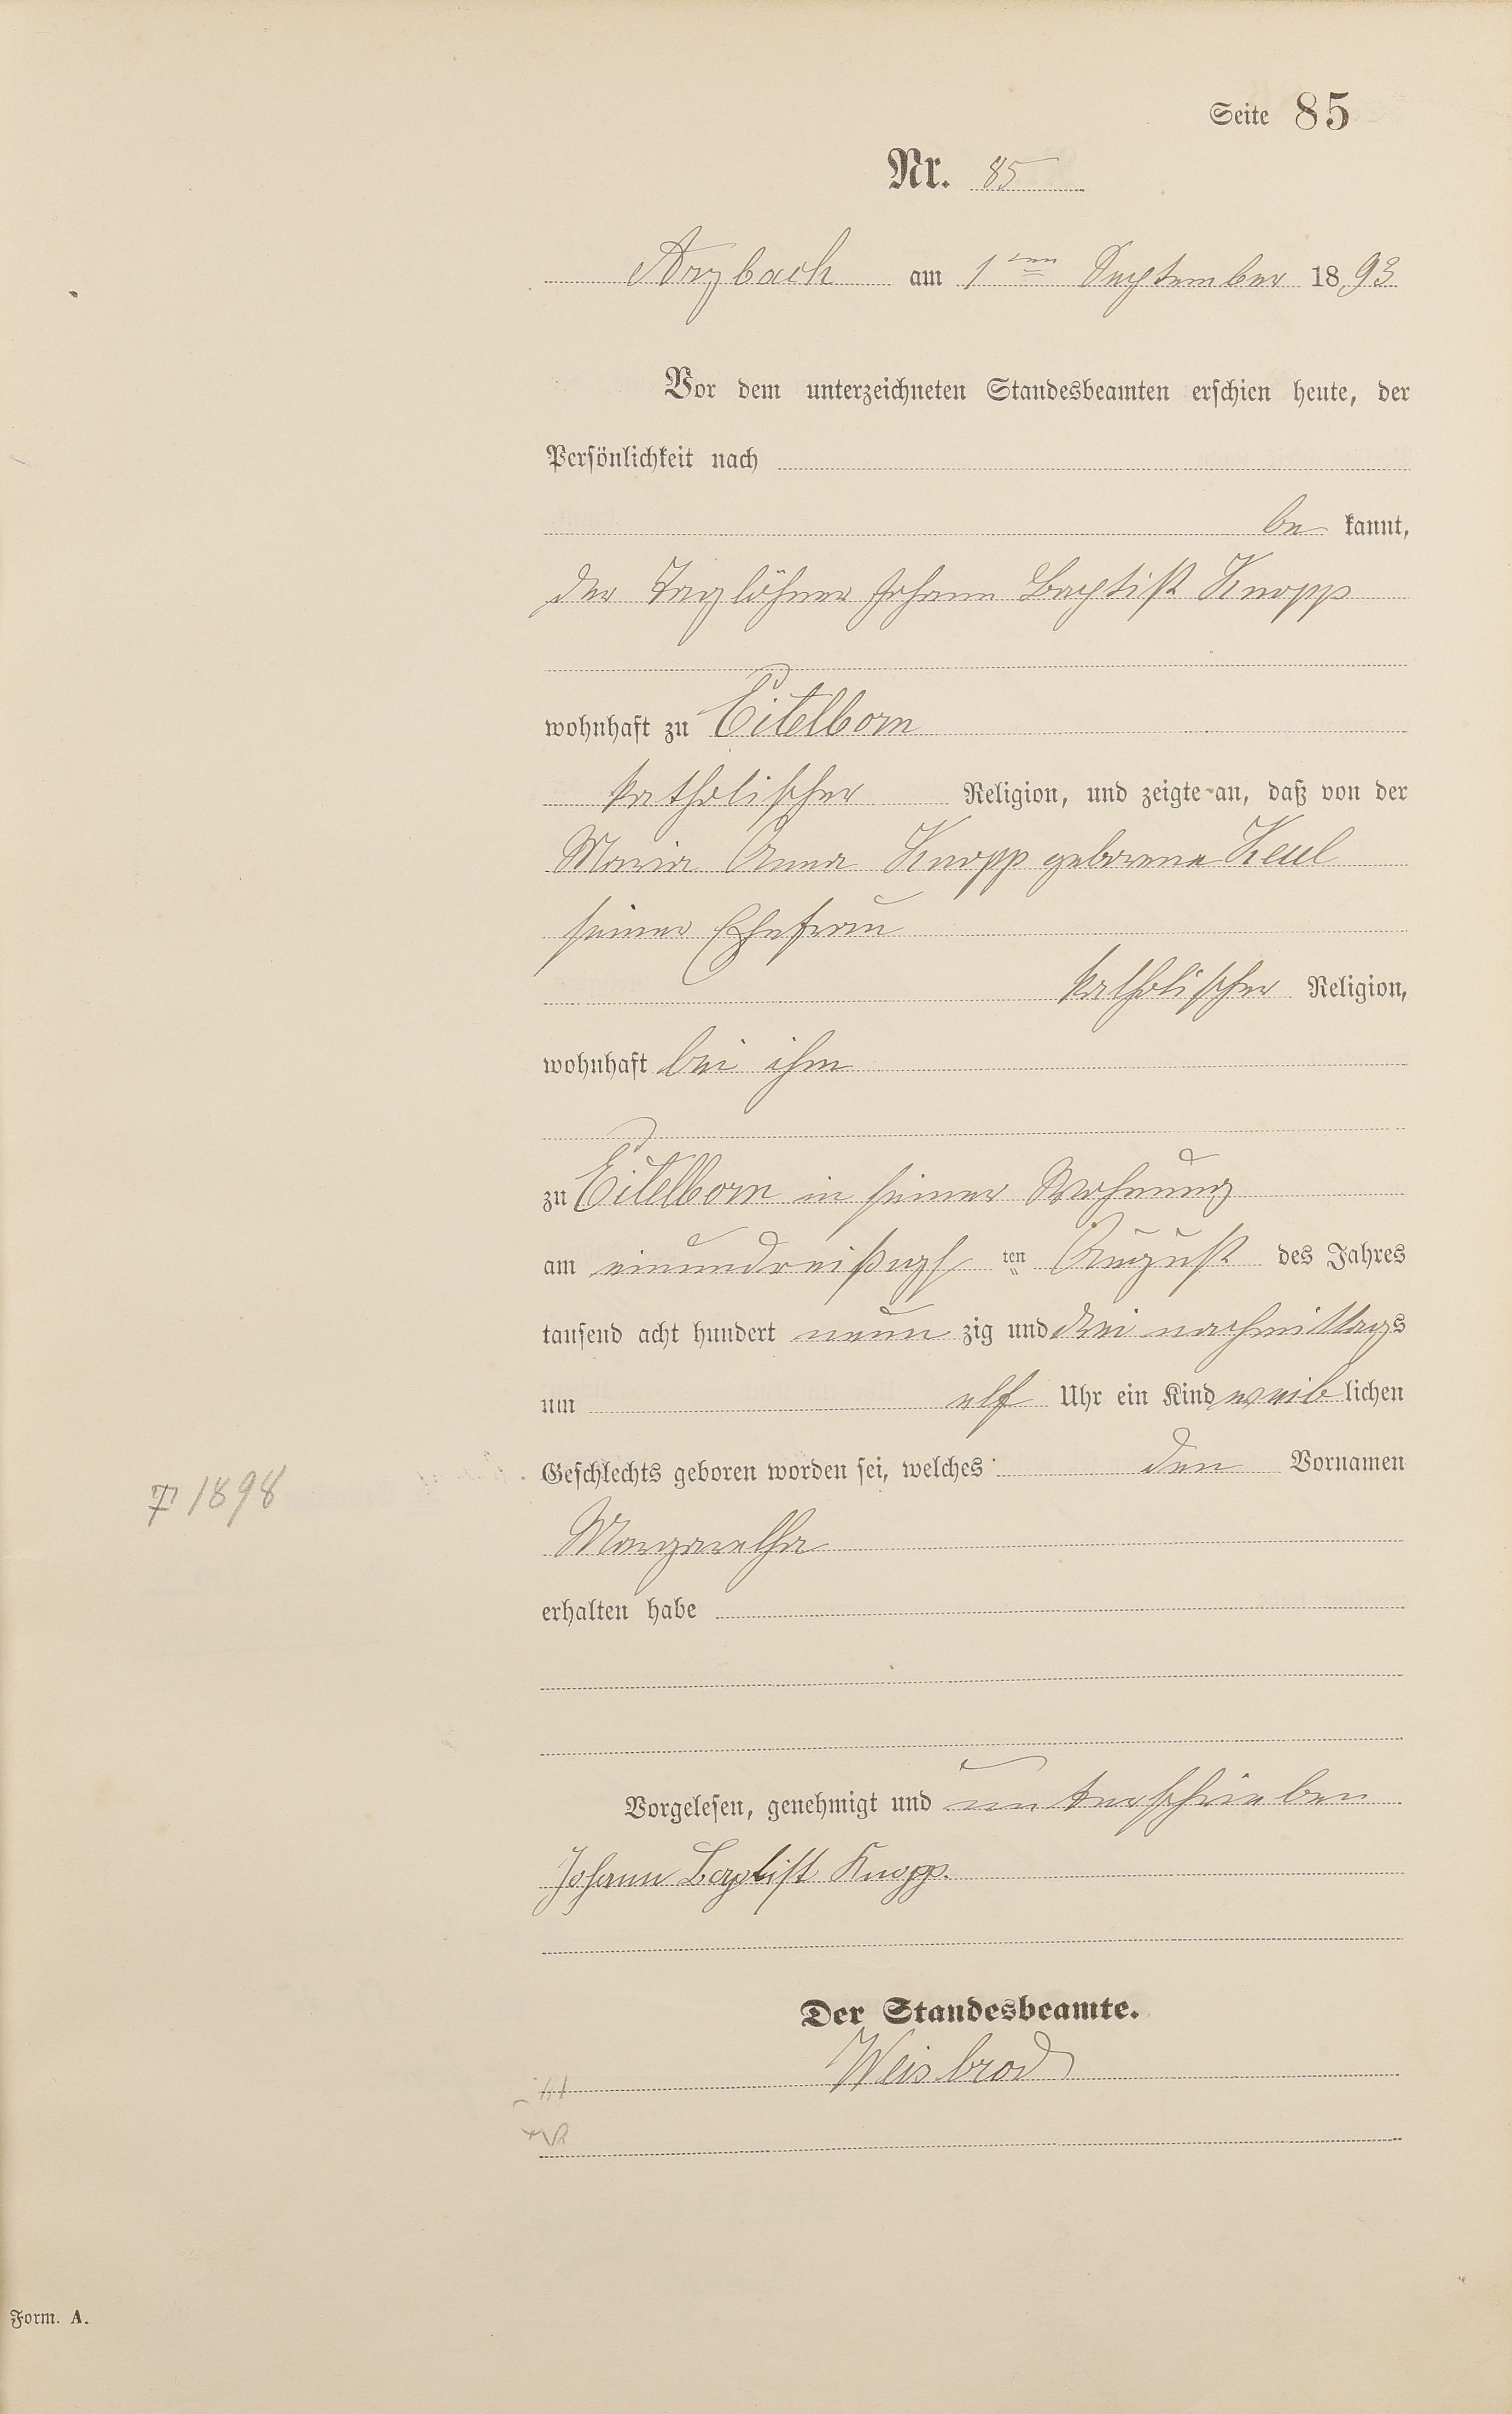 Seite 85
Nr. 85
Arzbach am 1ten September 1893
Vor dem unterzeichneten Standesbeamten erschien heute, der
Persönlichkeit nach
be kannt,
der Taglöhner Johann Baptist Knopp
wohnhaft zu Eitelborn
katholischer Religion, und zeigte an, daß von der
Maria Anna Knopp geborene Keul
seiner Ehefrau
katholischer Religion,
wohnhaft bei ihm
zu Eitelborn in seiner Wohnung
am einunddreißigs ten August des Jahres
tausend acht hundert neun zig und drei nachmittags
um elf Uhr ein Kind weib lichen
Geschlechts geboren worden sei, welches den Vornamen
† 1898
Margaretha
erhalten habe
Vorgelesen, genehmigt und unterschrieben
Johann Baptist Knopp.
Der Standesbeamte.
Weisbrod
Form. A.